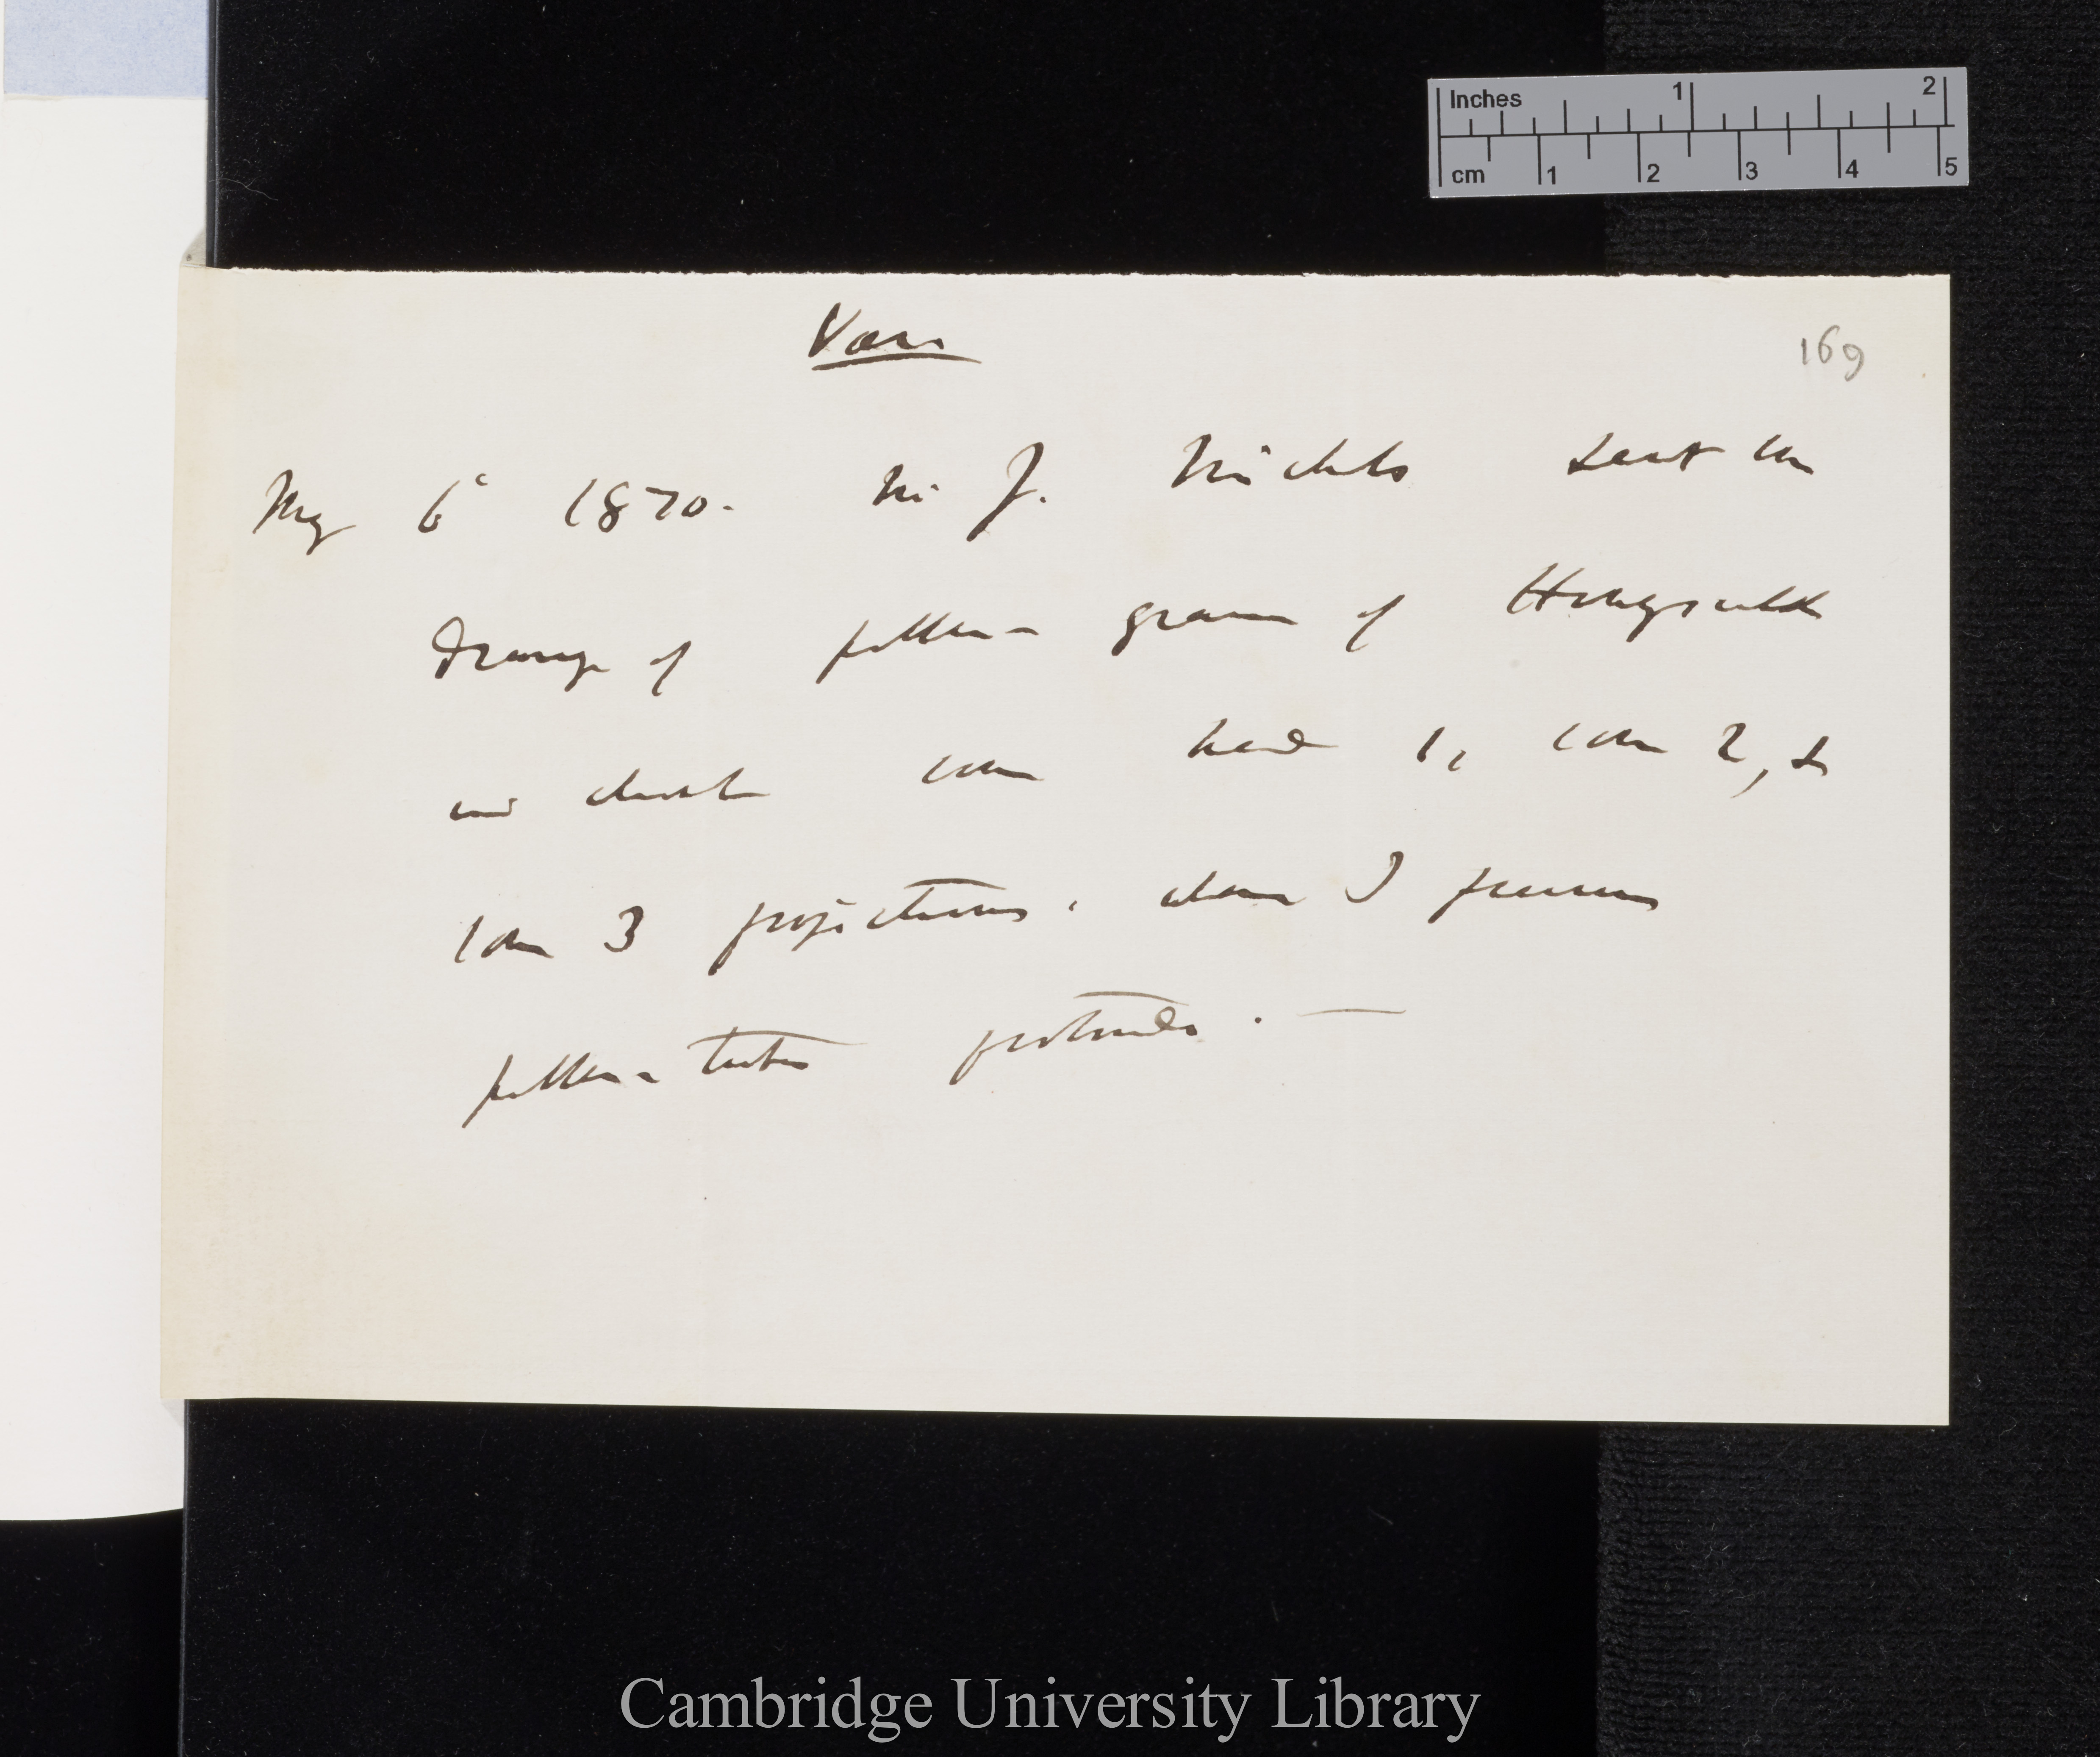 Inches 1 2
cm 1 2 3 4 5
Vars
169
May 6th 1870. Mr J. sent me
drawings of pollen-grains of Honeysuckle
in which some had 1, some 2, &
some 3 projections, where I presume
pollen-tubes protrude. —
Cambridge University Library